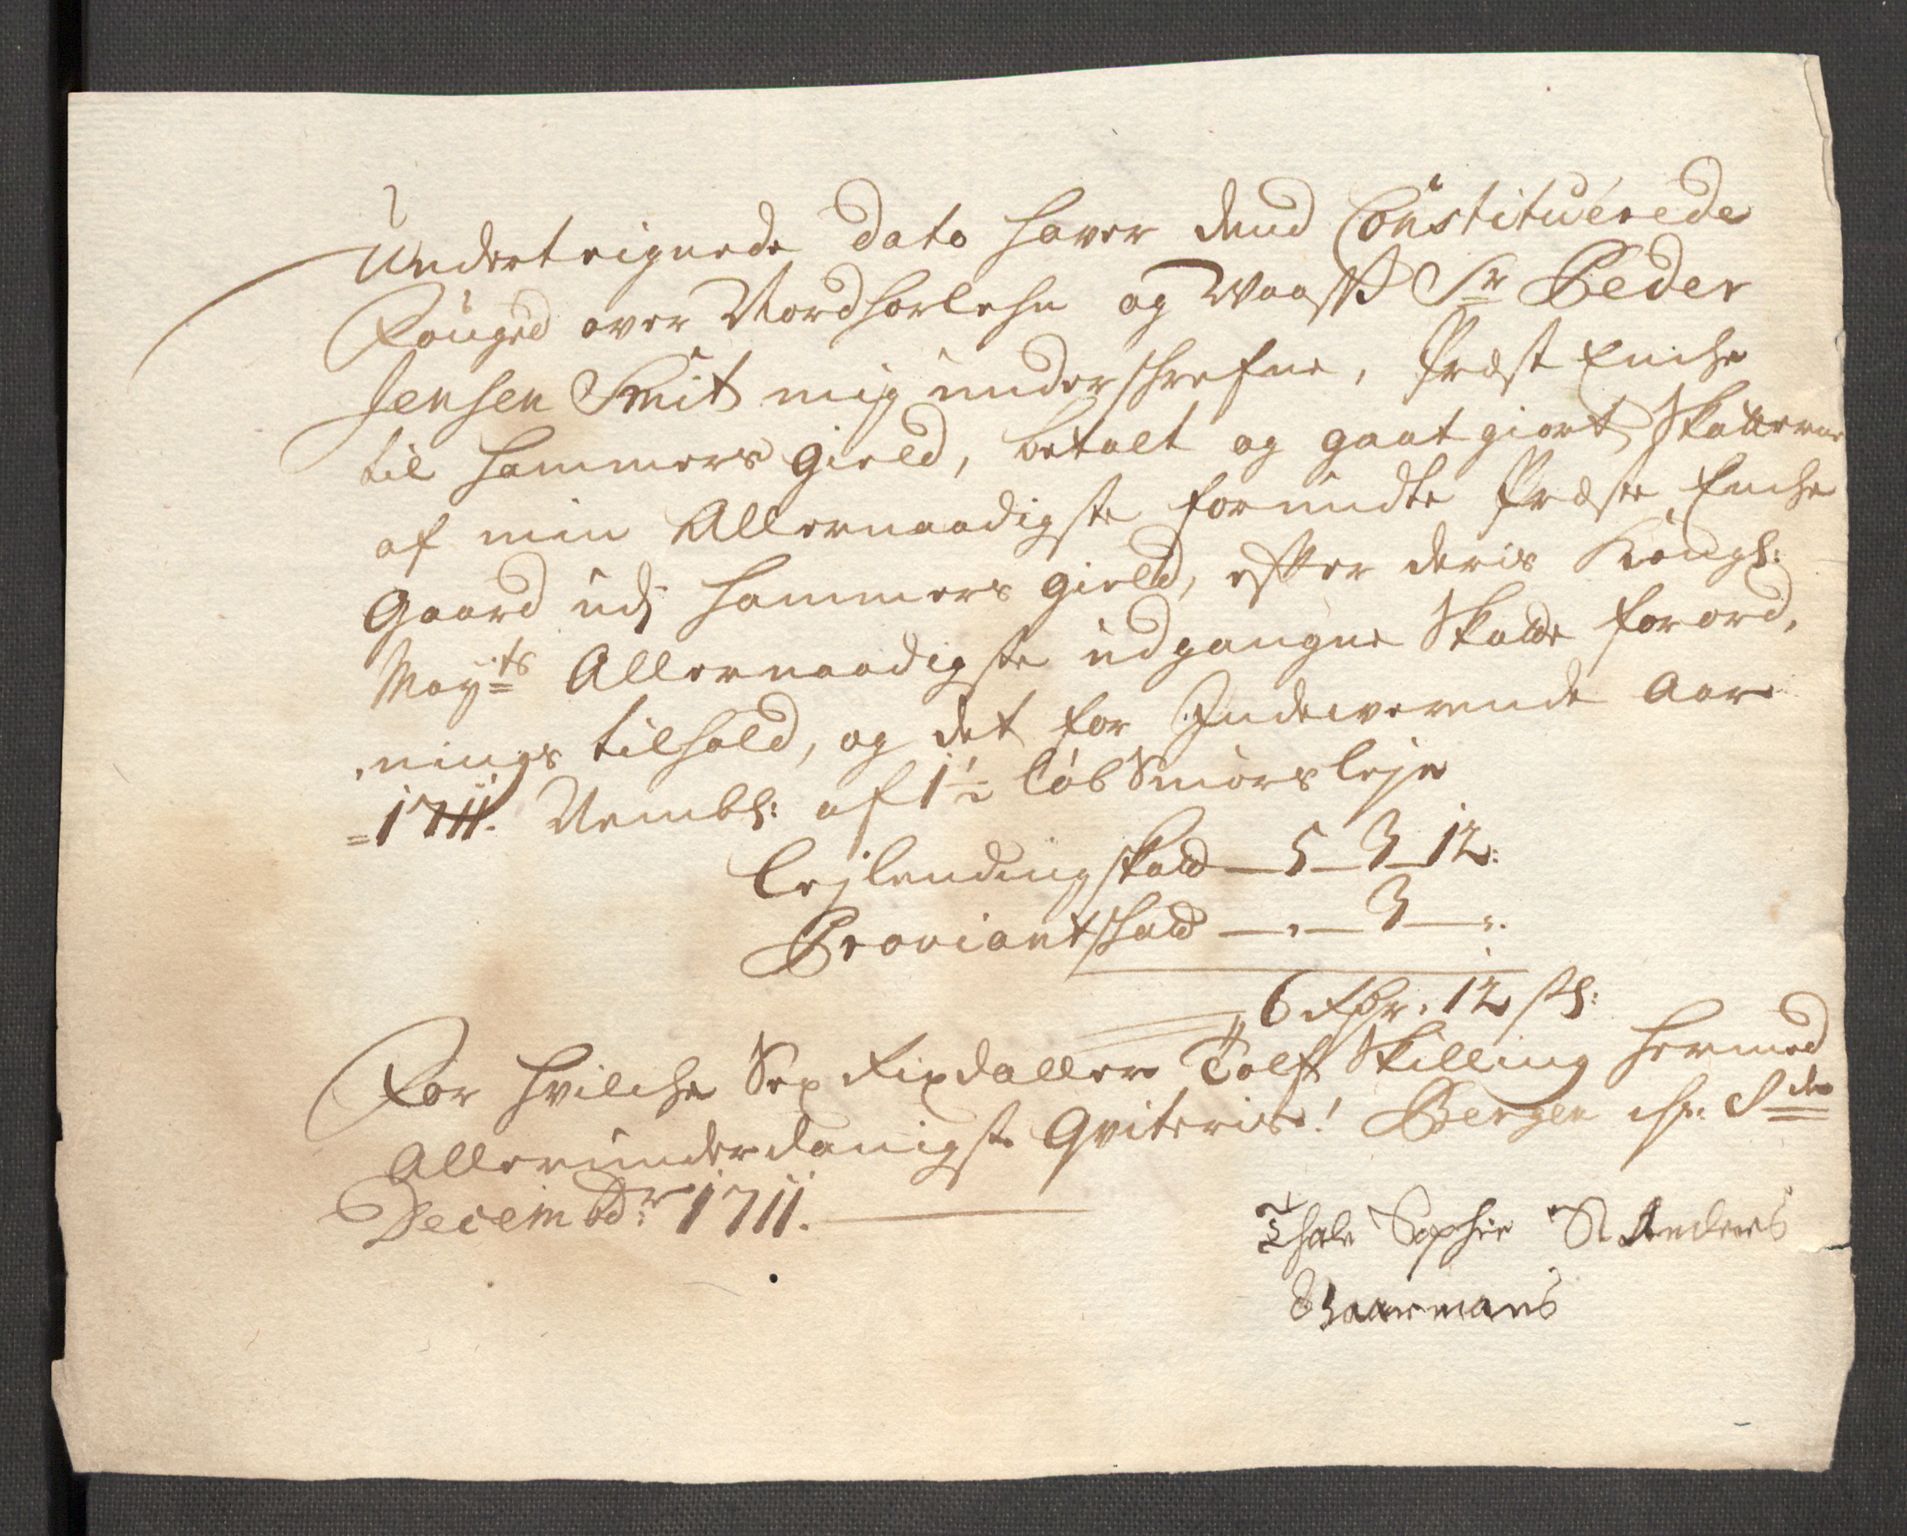 Underteignede dato haver dend Constituerede
Fouged over Nordhorlehn og Waaß Sr Peder
Jensen Smit mig underschrefne, Præst Enche
til Hammers gield, betalt og gaat giort Skatterne
af min Allernaadigste forundte Præste Enche
gaard udj Hammers gield, efter deris Kongl:
Mayts Allernaadigste udgangne Skatte forord,
nings tilhold, og det for Indewerende Aar
=1711. Nembl: af 1½ Løb Smørs leje
Lejlendingskatt — 5 — 3 — 12:
Proviantschatt — . — 3 — ".
6 Rdr. 12 sh:
For hvilche Sex Rixdaller Tolf Skilling hermed
Allerunderdanigst Qviteris! Bergen d:
Decembdr: 1711.
Thale Sophie Sl Anders
Baarmans